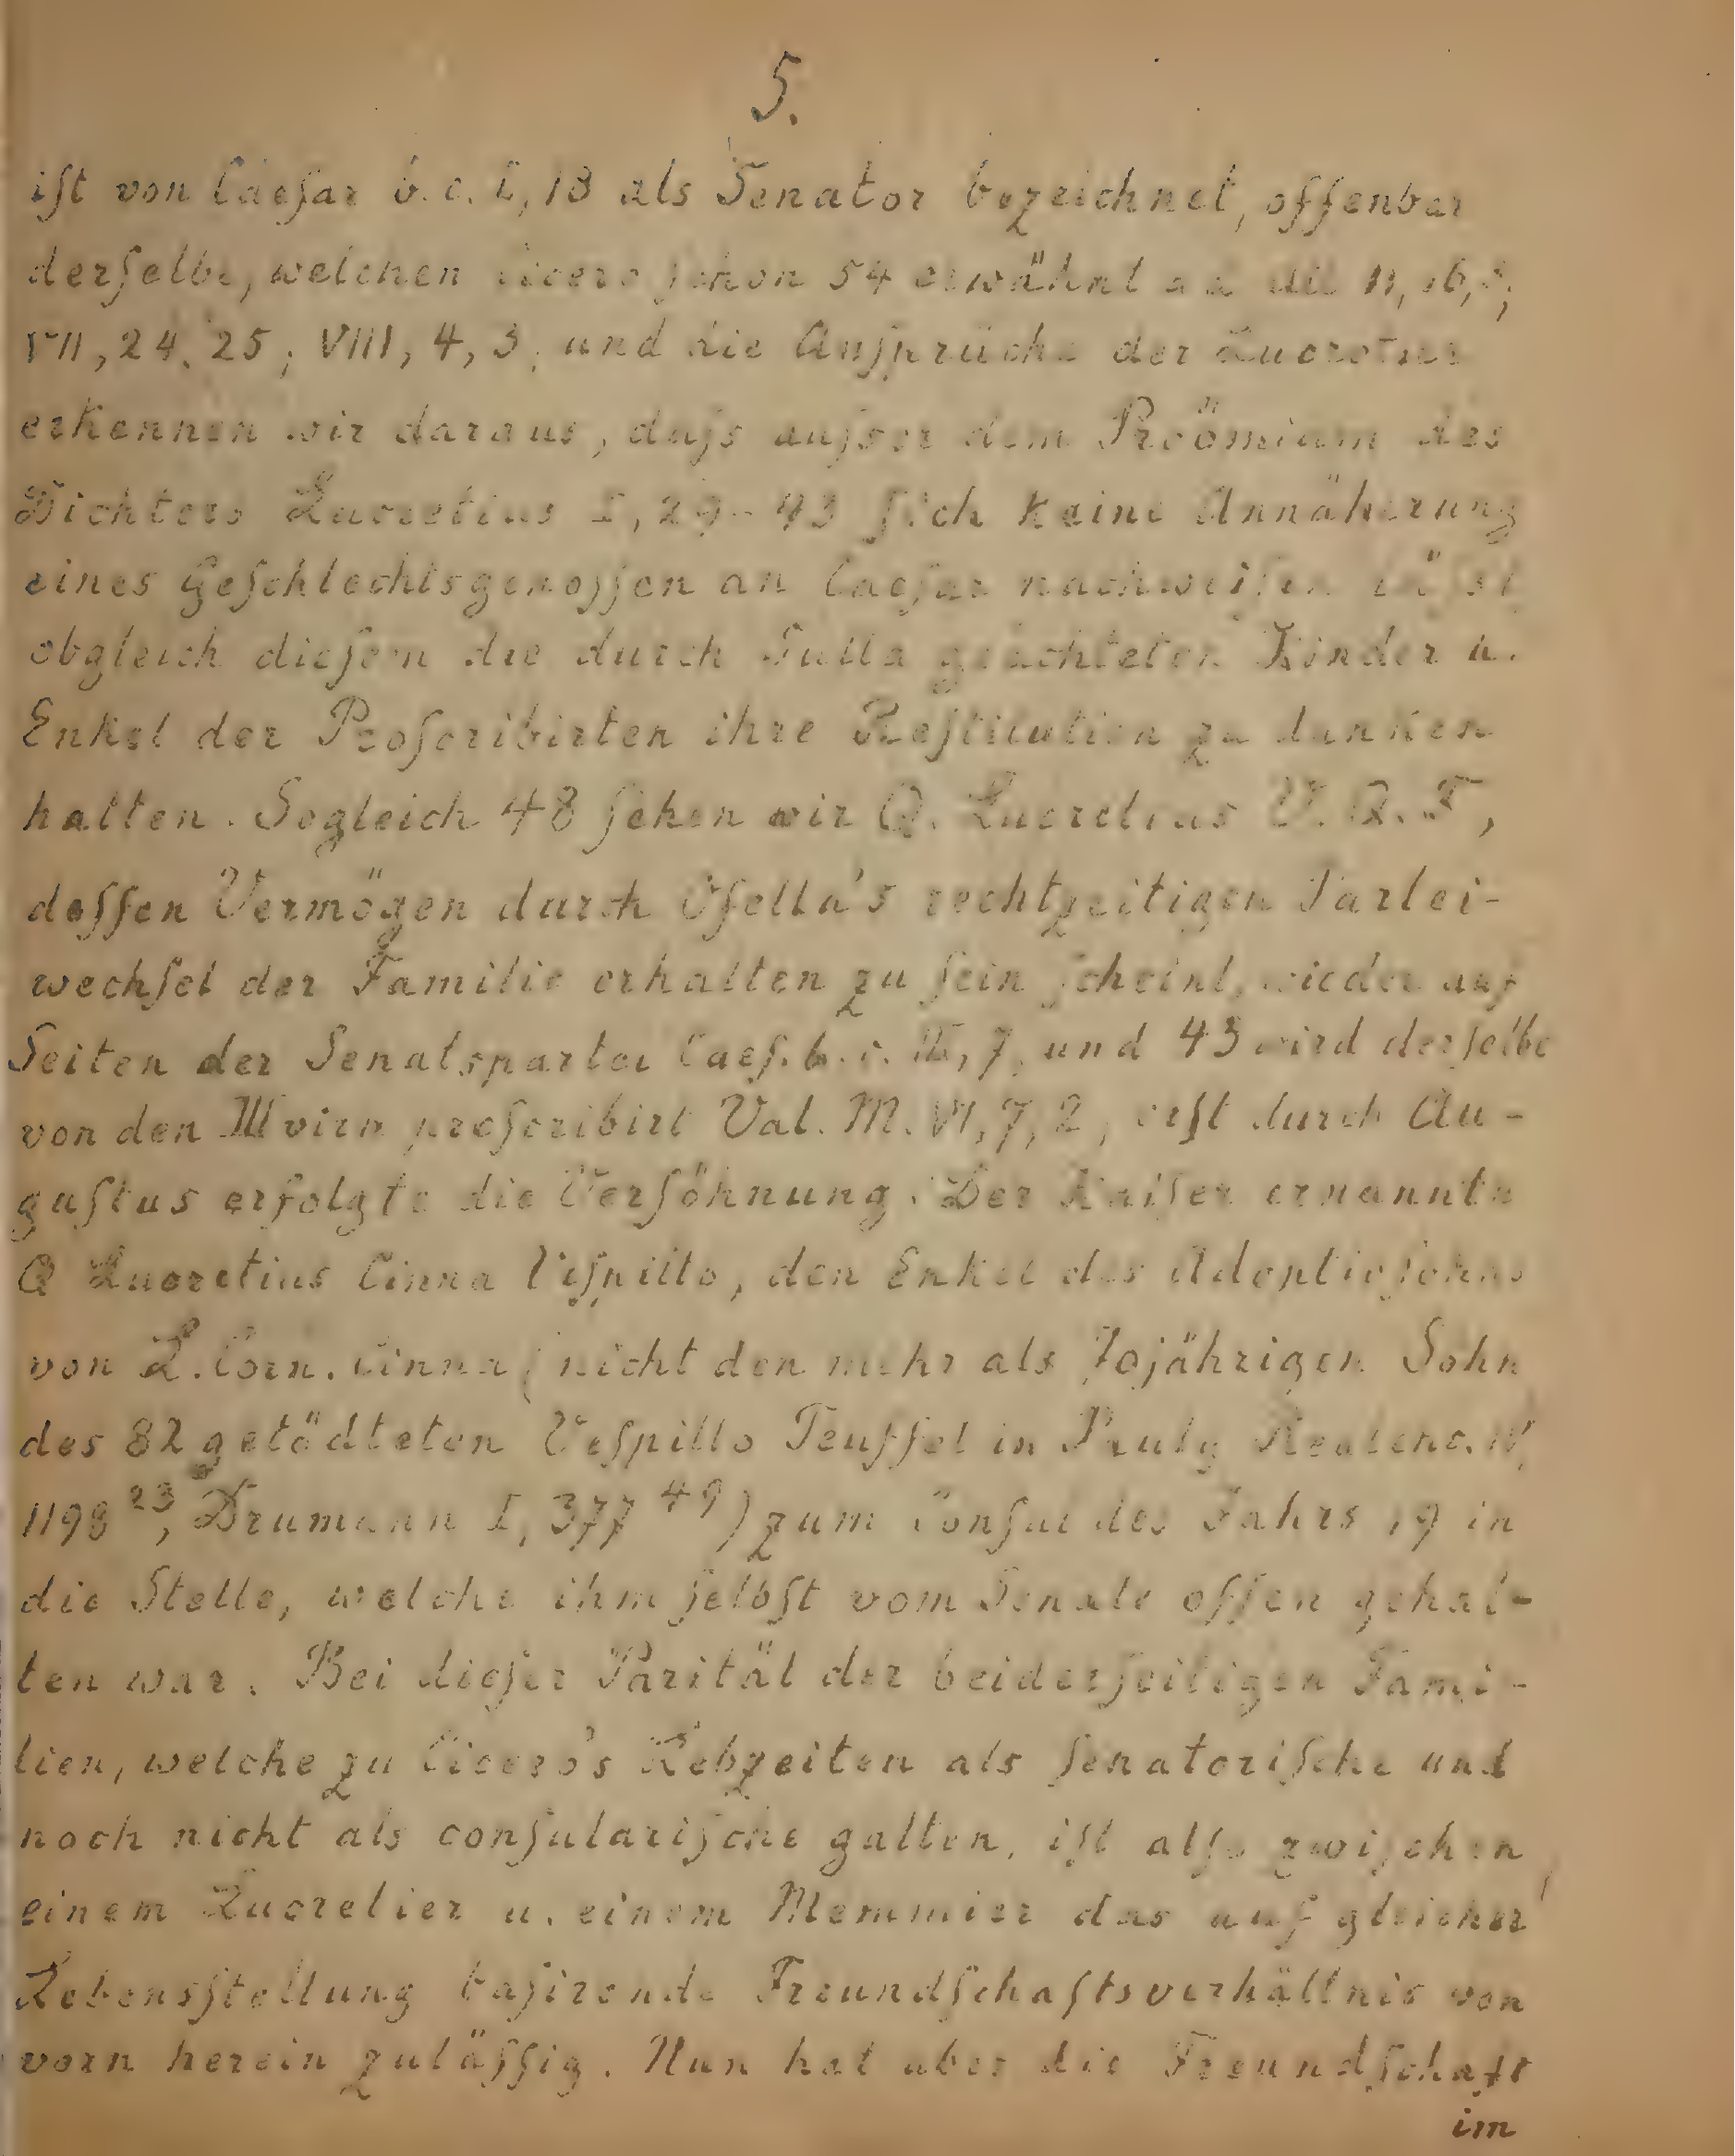 5.
iſt von Caeſar b. c. I, 18 als Senator bezeichnet, offenbar
derſelbe, welchen Cicero ſchon 54 erwähnt ad Att 11, 16, 5;
VII, 24. 25; VIII, 4, 3; und die Anſprüche der Lucretier
erkennen wir daraus, daſs auſser dem Proömium des
Dichters Lucretius I, 29-43 ſich keine Annäherung
eines Geſchlechtsgenoſſen an Caeſar nachweiſen läſst,
obgleich dieſem die durch Sulla geächteten Kinder u.
Enkel der Proſcribirten ihre Reſtitution zu danken
hatten. Sogleich 48 ſehen wir Q. Lucretius V. Q. F,
deſſen Vermögen durch Ofella's rechtzeitigen Partei-
wechſel der Familie erhalten zu ſein ſcheint, wieder auf
Seiten der Senatspartei Caeſ. b. c. III, 7, und 43 wird derſelbe
von den IIIvirn proſcribirt Val. M. VI, 7, 2, erſt durch Au-
guſtus erfolgte die Verſöhnung. Der Kaiſer ernannte
Q Lucretius Cinna Veſpillo, den Enkel des Adoptivſohns
von L. Corn. Cinna (nicht den mehr als 70jährigen Sohn
des 82 getödteten Veſpillo Teuffel in Pauly Realenc. IV,
1198 23, Drumann I, 377 49) zum Conſul des Jahrs 19 in
die Stelle, welche ihm ſelbſt vom Senate offen gehal-
ten war. Bei dieſer Parität der beiderſeitigen Fami-
lien, welche zu Cicero's Lebzeiten als ſenatoriſche und
noch nicht als conſulariſche galten, iſt alſo zwiſchen
einem Lucretier u. einem Memmier das auf gleicher
Lebensſtellung baſirende Freundſchaftsverhältnis von
vorn herein zuläſſig. Nun hat aber die Freundſchaft
im